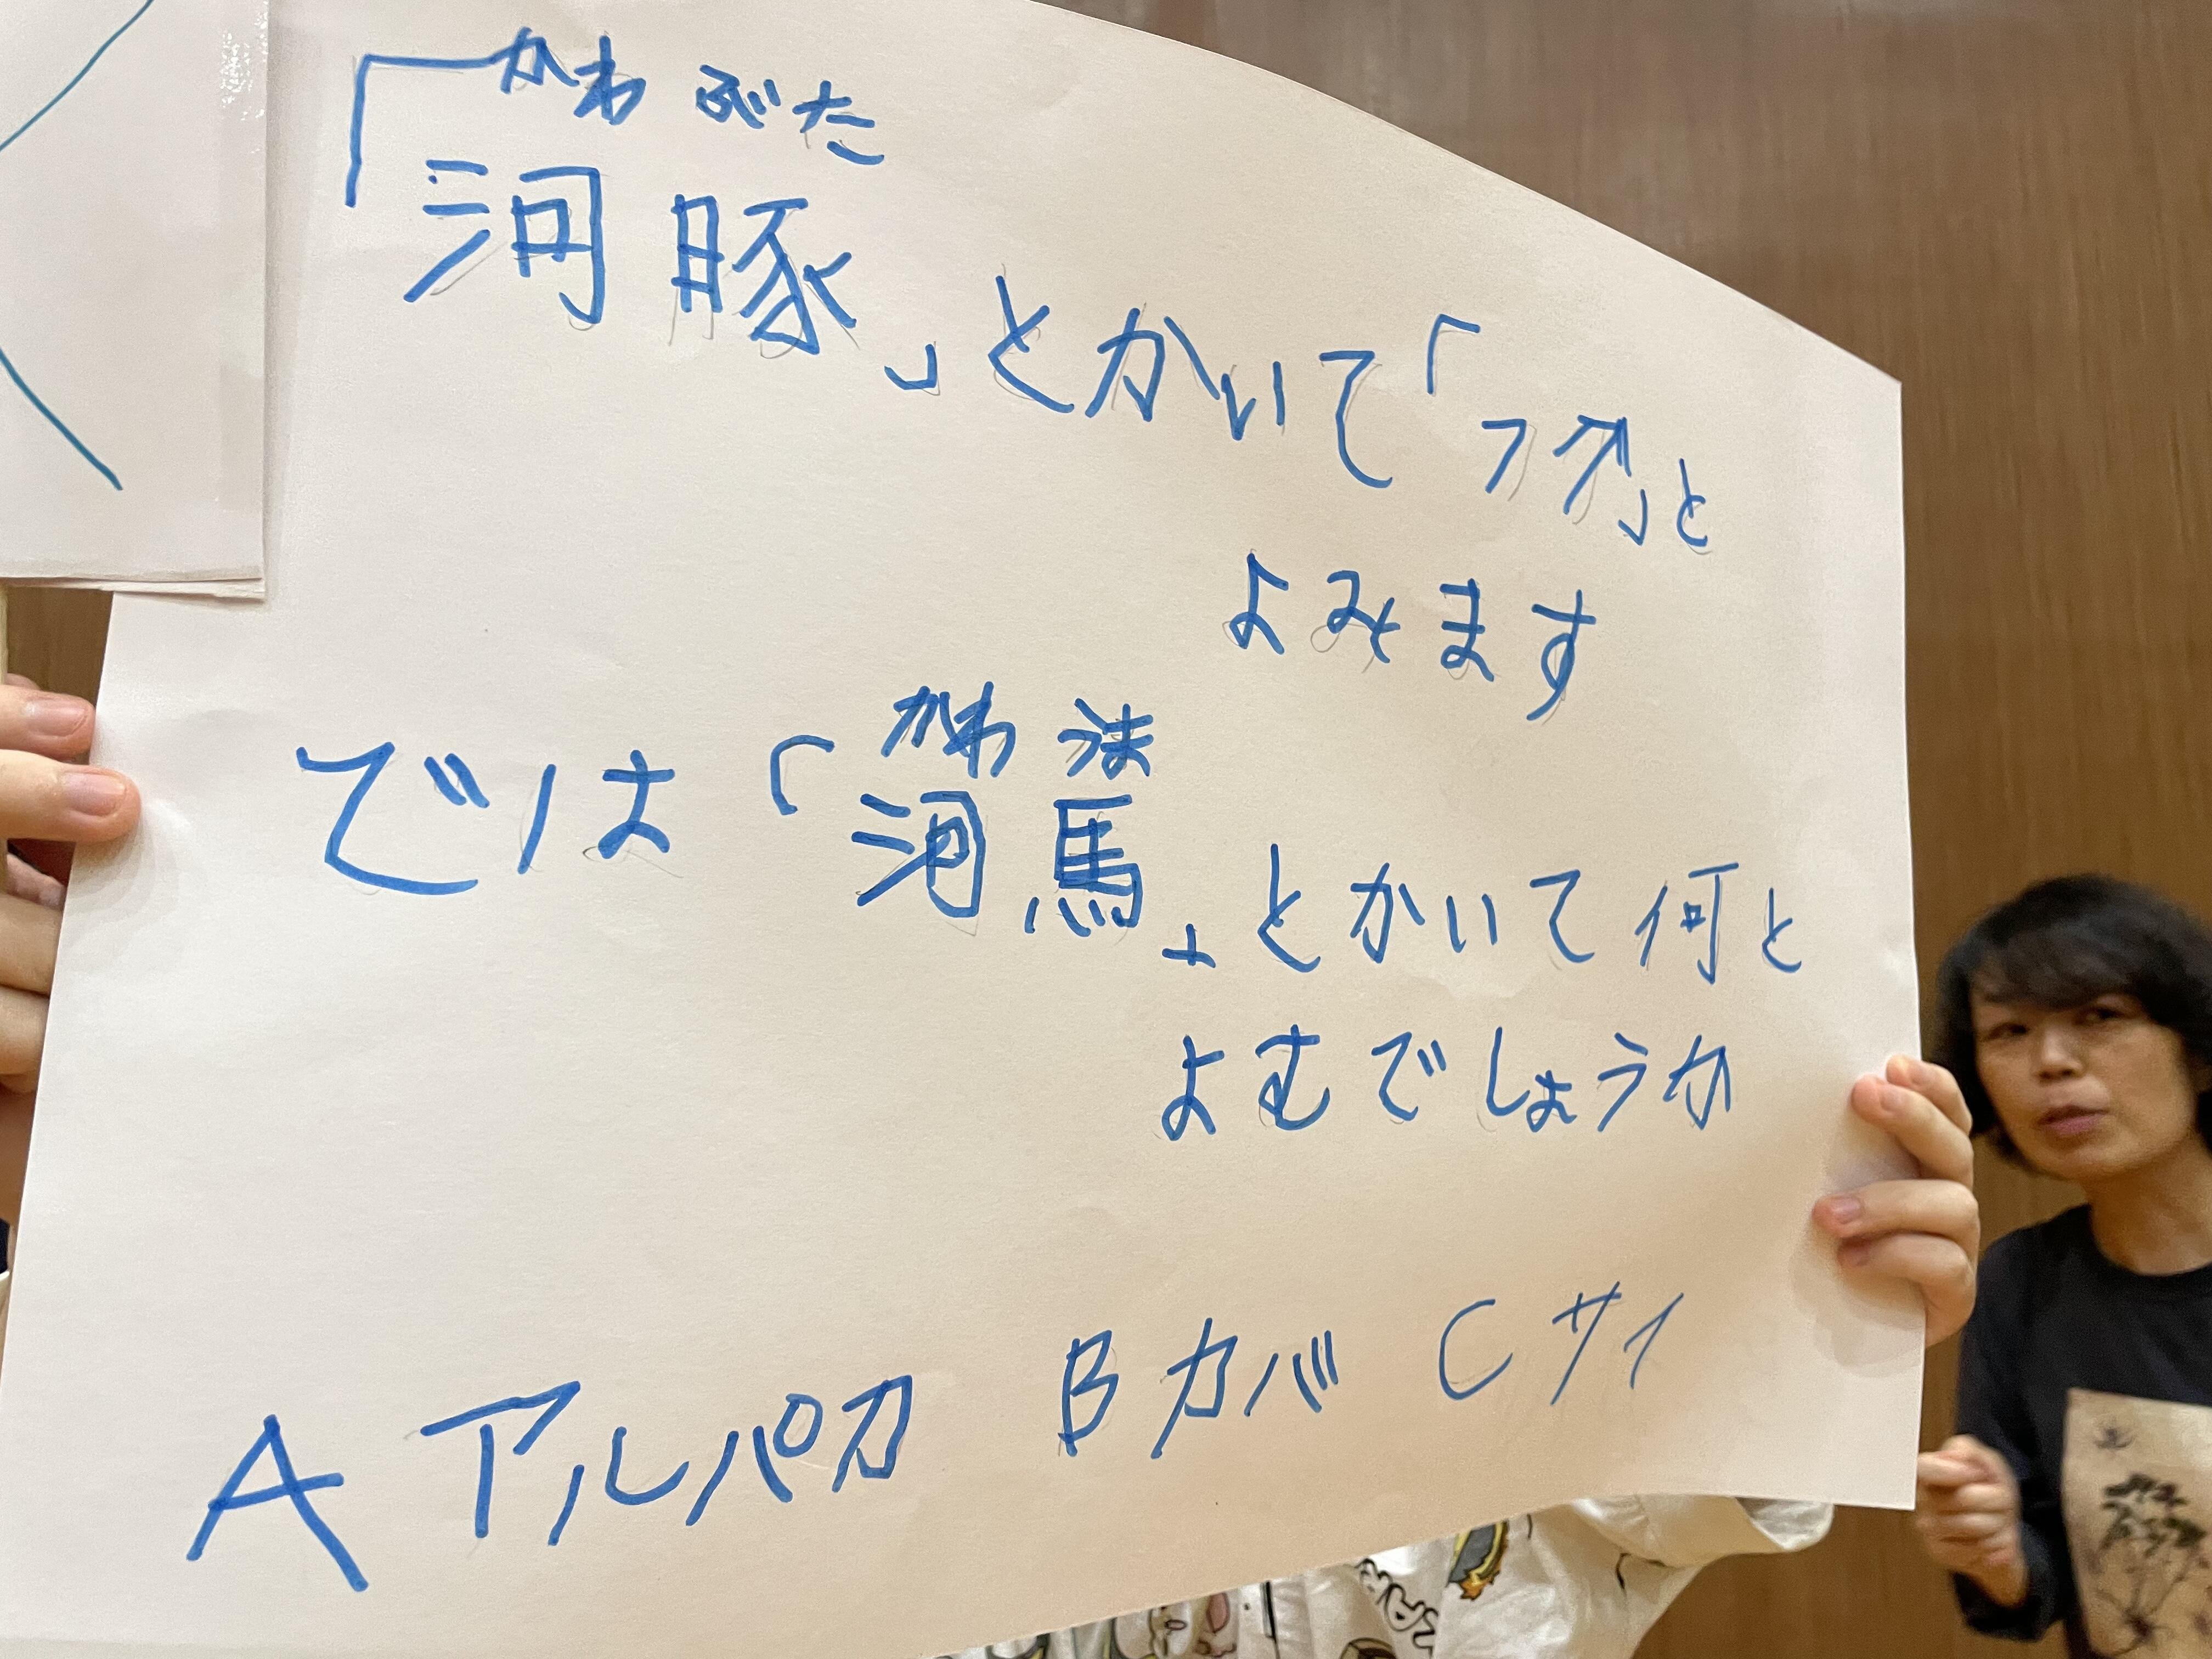 かわ ぶた
「河豚」とかいて「フグ」と
よみます
かわ うま
では「河馬」とかいて何と
よむでしょうか
A アルパカ B カバ C サイ